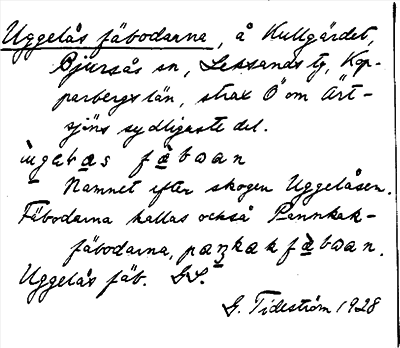 Uggelås fäbodarna, å Kullgärdet,
Bjursås sn, Leksands tg, Kop-
parbergs län, strax Ö om Ärt-
sjöns sydligaste del.
Namnet efter skogen Uggelåsen.
Fäbodarna kallas också Pannkak-
fäbodarna,
Uggelås fäb. GS.
G. Tideström 1928